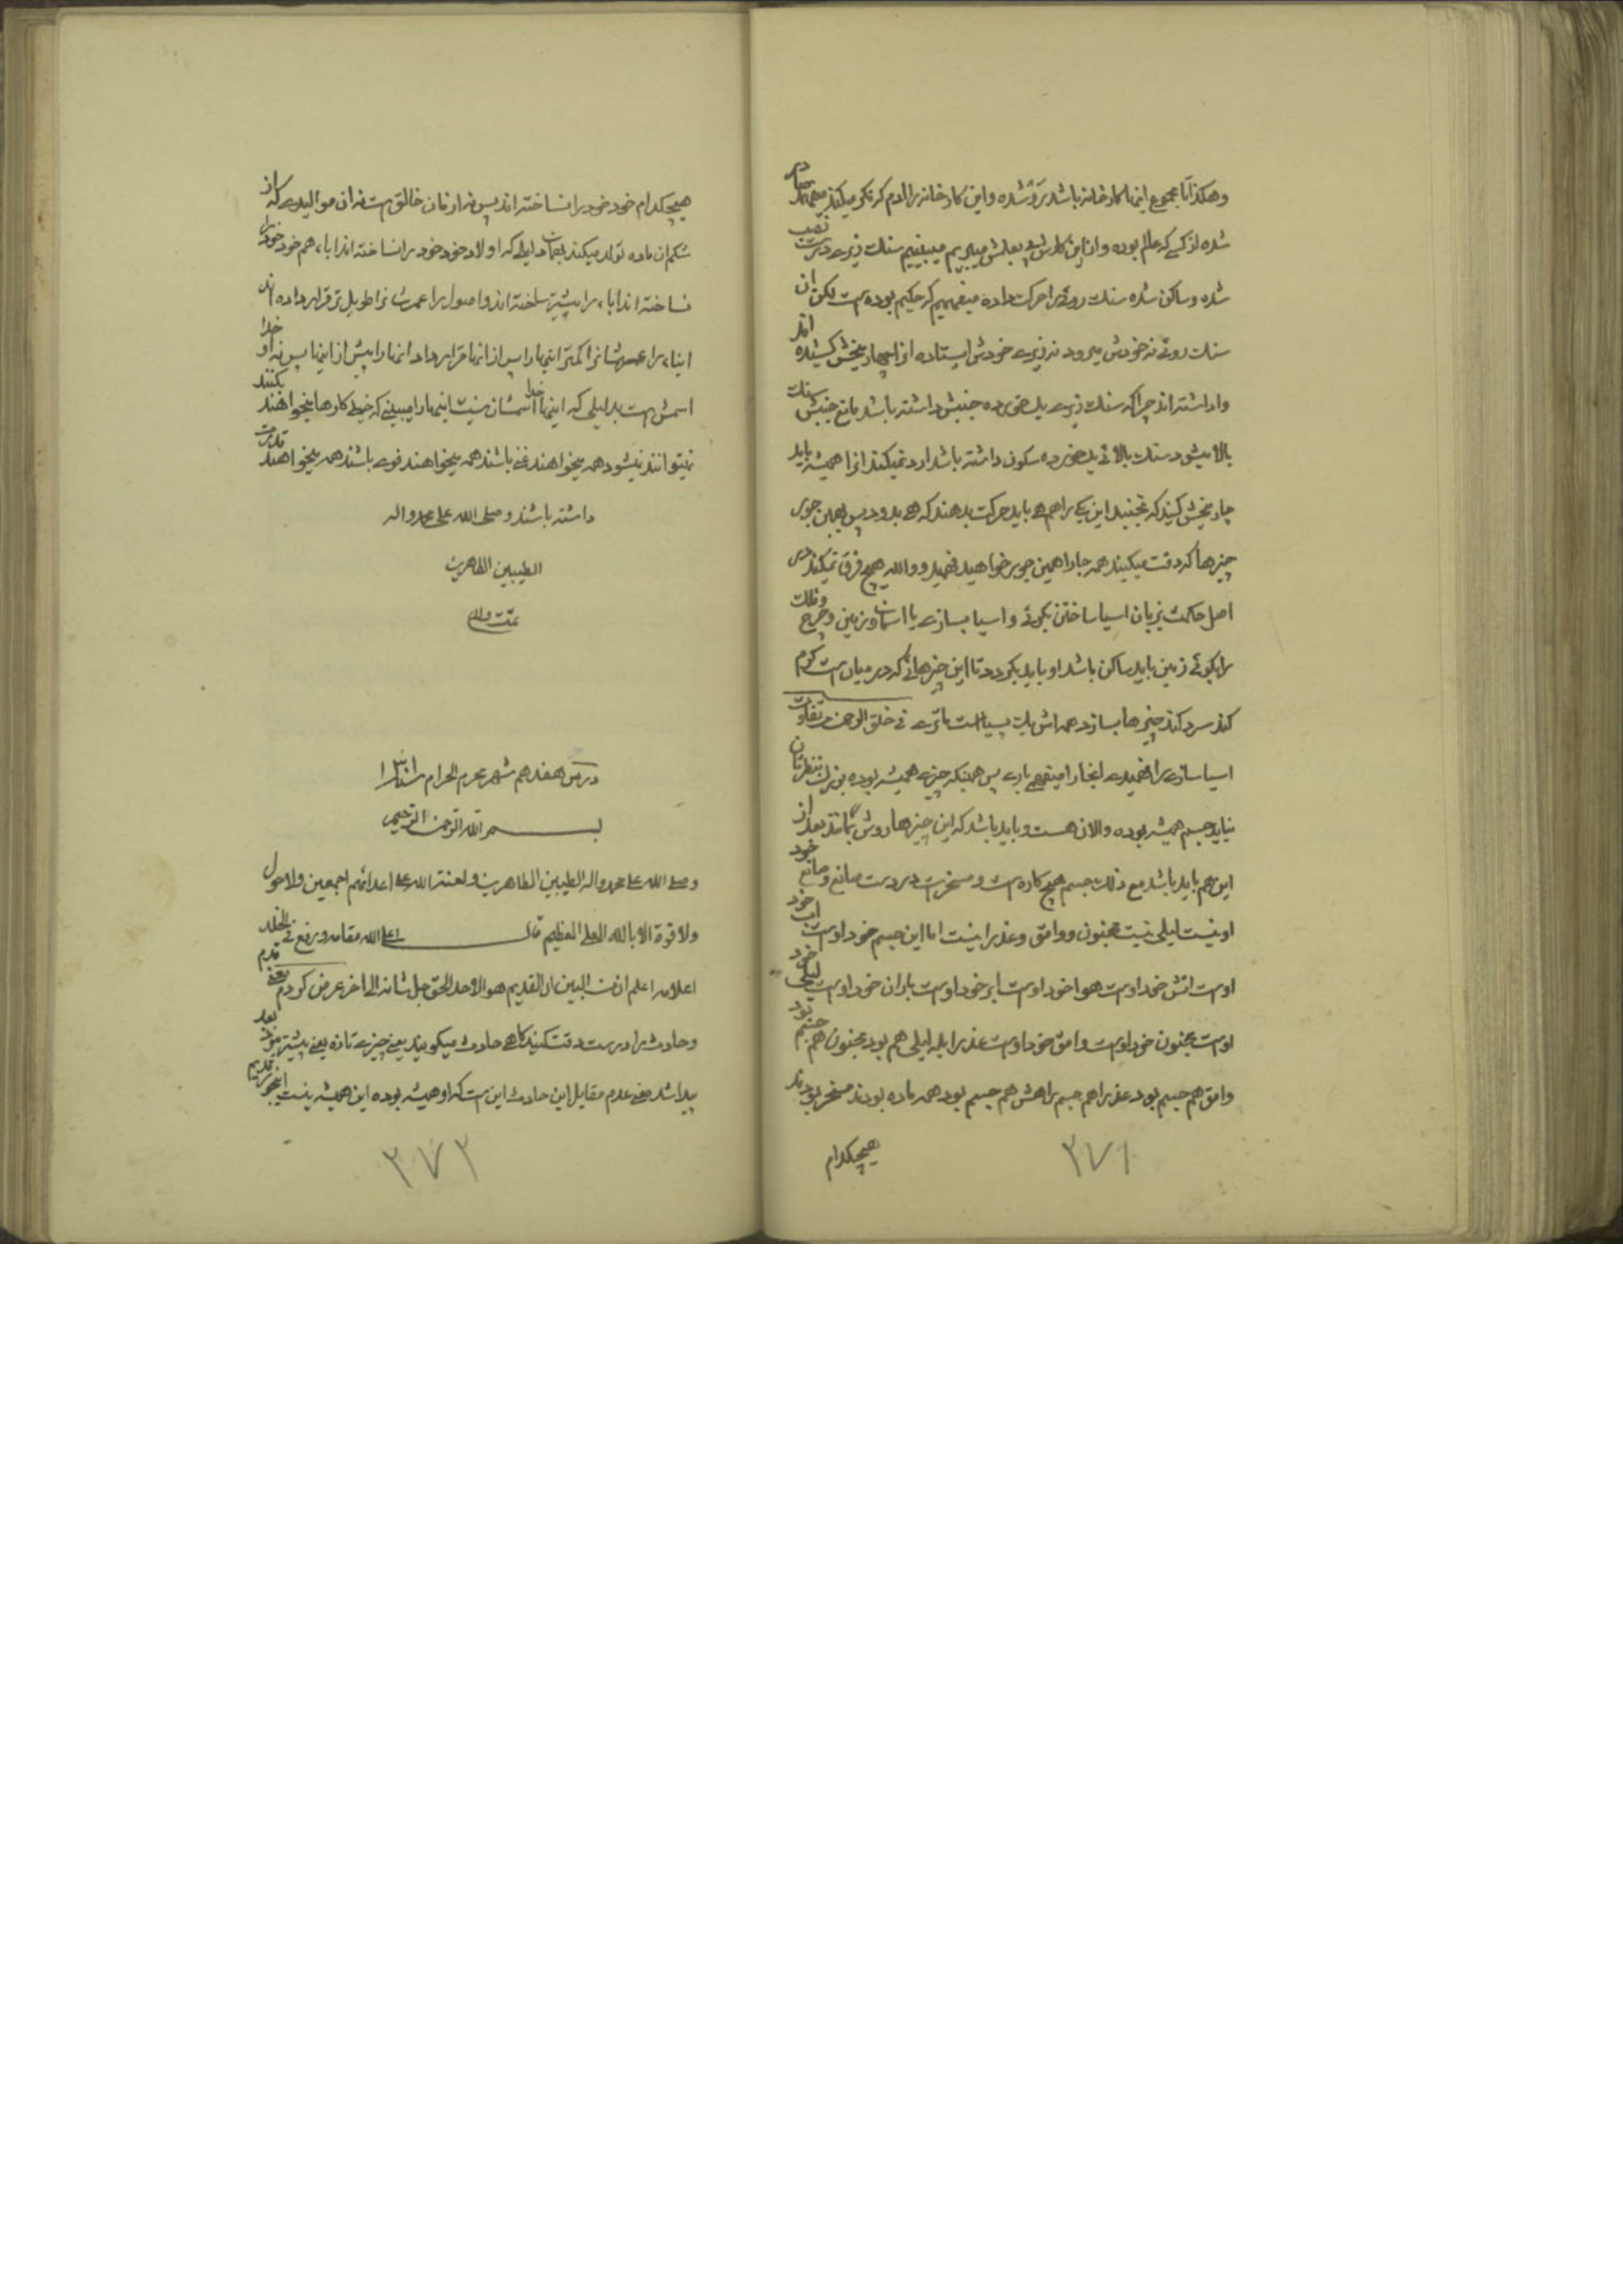 وهکذا تا مجموع اینها کارخانه باشد تو شده و این کارخانه را آدم که نگو میکند میفهمد درست
شده از کسی که عالم بوده و از این کارش پی بعلمش میبریم میبینیم سنک زیری درست نصب
شده و ساکن شده سنک روئی را حرکت داده میفهمیم که حکیم بوده است لکن آن
سنک روئی نه خودش میرود نه زیری خودش ایستاده انرا بچهار میخش کشیده اند
واداشته اند چرا که سنک زیری یک خورده جنبش داشته باشد مانع جنبش سنک
بالا میشود سنک بالائی یک خورده سکون داشته باشد ارد نمیکند انرا همیشه باید
چار میخش کنند که نجنبد این یکی را هم هی باید حرکت بدهند که هی بدود پس همین جور
چیزها که دقت میکنید همه جا را همین جور خواهید فهمید و والله هیچ فرق نمیکند در
اصل حکمت نزبان اسیا ساختن بگوئی و اسیا بسازی یا اسمان و زمین و چرخ و فلک
را بگوئی زمین باید ساکن باشد او باید بگردد تا این چیزهائی که در میان است گرم
کند سرد کند چیزها بسازد همه اش یک سیاست ماتری فی خلق الرحمن من تفاوت
اسیا سازی را فهمیدی اینجا را میفهمی باری پس همینکه چیزی همیشه بوده بزرک بنظرتان
نیاید جسم همیشه بوده والان هست و باید باشد که این چیزها روش بمانند بعد از
این هم باید باشد مع ذلک جسم هیچ کاره است و مسخر است در دست صانع و صانع خود
او نیست لیلی نیست مجنون و وامق و عذرا نیست اما این جسم خود اوست اب خود
اوست اتش خود اوست هوا خود اوست ابر خود اوست باران خود اوست لیلی خود
اوست مجنون خود اوست وامق خود اوست عذرا بله لیلی هم بود مجنون هم جسم بود
وامق هم جسم بود عذرا هم جسم براهمش هم جسم بود همه ماده بودند مسخر بودند
هیچکدام
۳۷۱
هیچکدام خود خود را نساخته اند پس نه ارنان خالق است نه ان موالیدی که از
شکم ان ماده تولد میکند بهمان دلیل که اولاد خود خود را نساخته اند اباء هم خود خود را
نساخته اند اباء را پیشتر ساخته اند و اصول را عمرشان را طویل تر قرار داده اند
ابناء را عمرهاشان را کمتر اینها را پس از انها قرار داد انها را پیش از اینها پس نه او خدا
اسمش است بدلیلی که اینها خدا اسمشان نیست اینها را میبینی که خیلی کارها میخواهند بکنند
نمیتوانند نمیشود همه میخواهند غنی باشند همه میخواهند قوی باشند همه میخواهند قدرت
داشته باشند و صلی الله علی محمد واله
الطیبین الطاهرین
تمت والم
درس هفدهم شهر محرم الحرام سنه ۱۳۰۱
بسم الله الرحمن الرحیم
وصلی الله علی محمد واله الطیبین الطاهرین ولعنة الله علی اعدائهم اجمعین ولا حول
ولا قوة الا بالله العلی العظیم قال اعلی الله مقامه ورفع فی الخلد
اعلامه اعلم ان من البین ان القدیم هو الاحد الحق جل شانه الی اخر عرض کردم معنی قدم
وحادث را درست دقت کنید گاهی حادث میگویند یعنی چیزی تازه یعنی پیشتر نبود بعد
پیدا شد معنی قدم مقابل این حادث این است که او همیشه بوده این همیشه نیست اینجور قدیم
۳۷۲